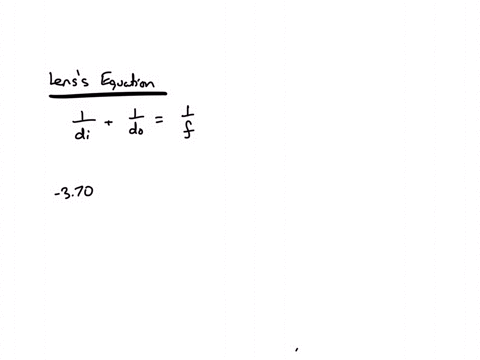 Lens's Equation
1/di + 1/do = 1/f
-3.70